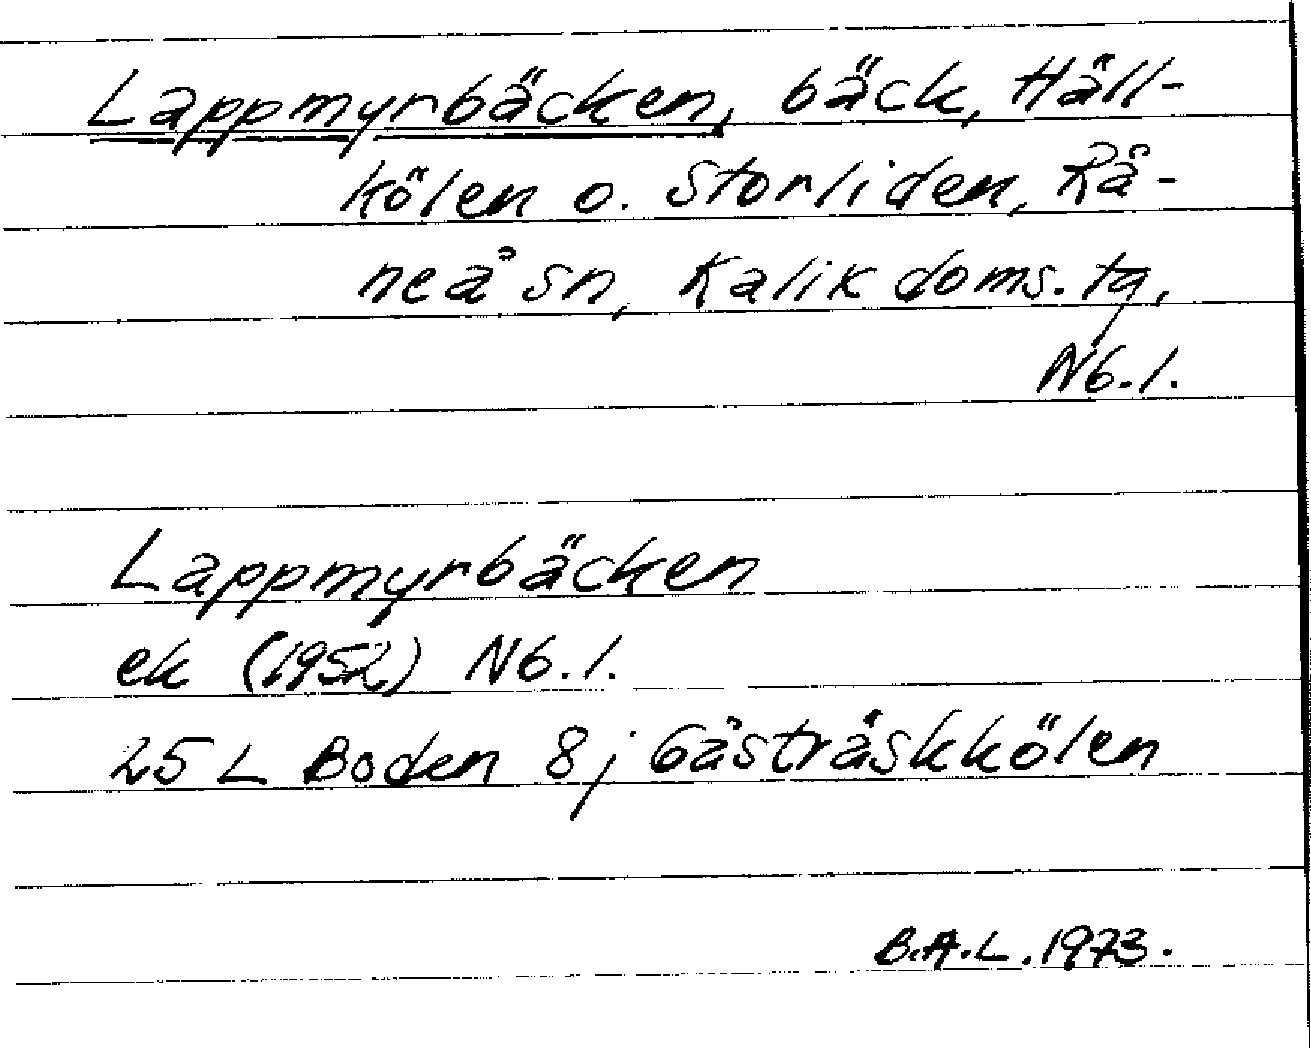 Lappmyrbäcken, bäck, Häll-
kölen o. Storliden, Rå-
neå sn, Kalix doms. tg,
Nb. l.
Lappmyrbäcken
ek (1952) Nb. l.
25 L Boden 8j Gåsträskkölen
B.A.L. 1973.